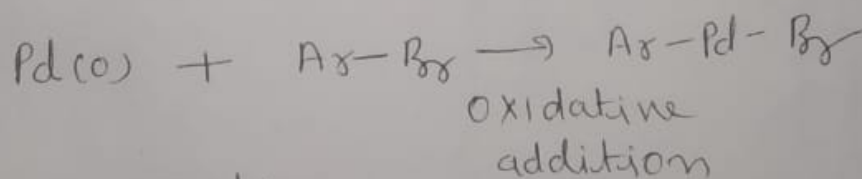 Pd(0) + Ar-Br → Ar-Pd-Br
oxidative
addition